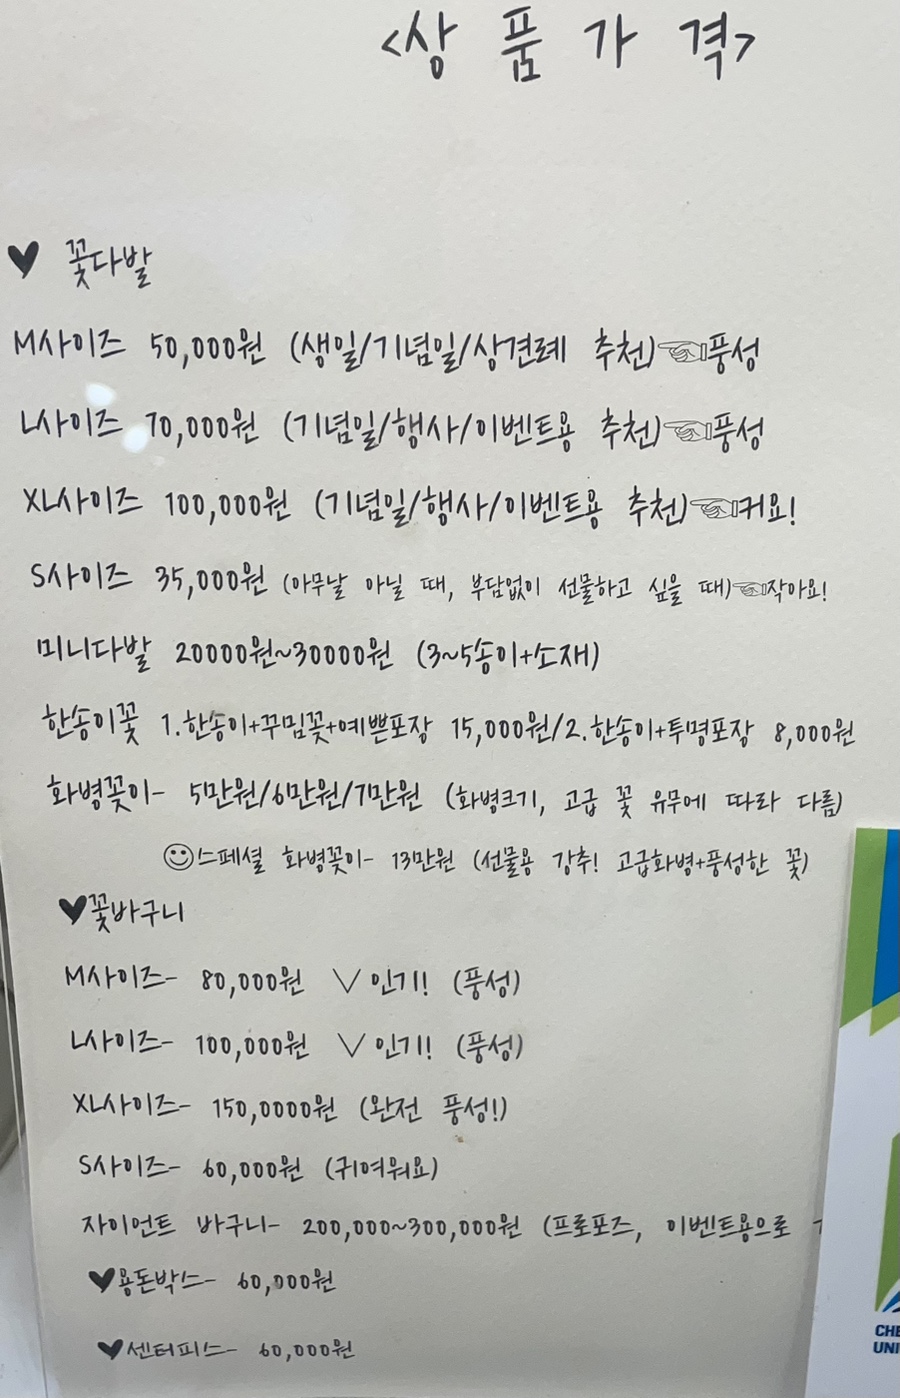 <상 품 가 격>
♥ 꽃다발
M사이즈 50,000원 (생일/기념일/상견례 추천)☜풍성
L사이즈 70,000원 (기념일/행사/이벤트용 추천)☜풍성
XL사이즈 100,000원 (기념일/행사/이벤트용 추천)☜커요!
S사이즈 35,000원 (아무날 아닐 때, 부담없이 선물하고 싶을 때)☜작아요!
미니다발 20000원~30000원 (3~5송이+소재)
한송이꽃 1.한송이+꾸밈꽃+예쁜포장 15,000원/2.한송이+투명포장 8,000원
화병꽃이- 5만원/6만원/7만원 (화병크기, 고급 꽃 유무에 따라 다름)
☺스페셜 화병꽃이- 13만원 (선물용 강추! 고급화병+풍성한 꽃)
♥꽃바구니
M사이즈- 80,000원 ∨인기! (풍성)
L사이즈- 100,000원 ∨인기! (풍성)
XL사이즈- 150,0000원 (완전 풍성!)
S사이즈- 60,000원 (귀여워요)
자이언트 바구니- 200,000~300,000원 (프로포즈, 이벤트용으로
♥용돈박스- 60,000원
♥센터피스- 60,000원
CHE
UNI